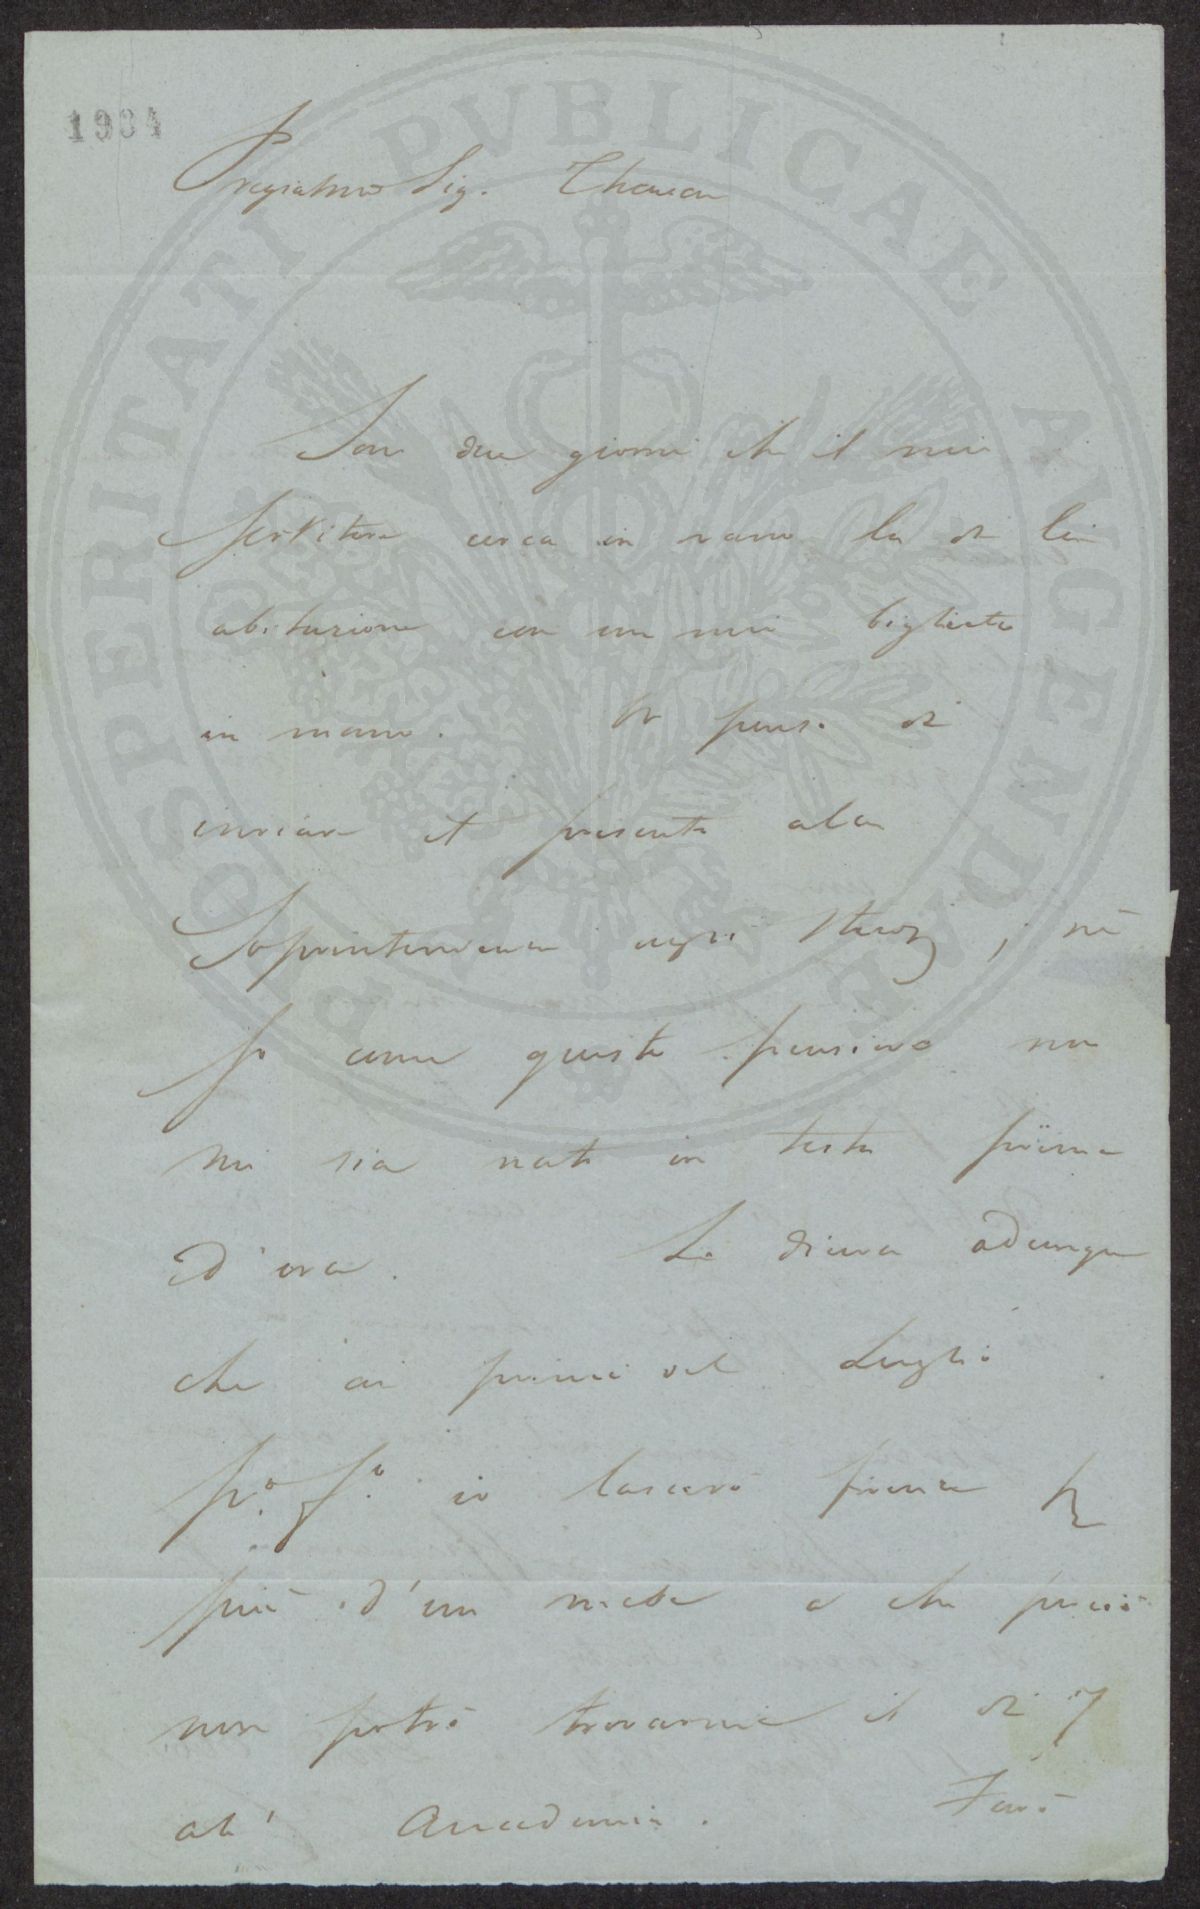 1934
Pregiatmo Sig. Thouar
Son due giorni che il mio
servitore cerca in vano la di lei
abitazione con un mio biglietto
in mano. Or penso di
inviare il presente alla
Soprintendenza degli Studj, nè
so come questo pensiero non
mi sia nato in testa prima
d'ora. Le diceva adunque
che ai primi del Luglio
po. fo. io lascerò Firenze per
più d'un mese e che perciò
non potrò trovarmi il dì 7
all' Accademia. Farò
PROSPERITATI PVBLICAE AVGENDAE